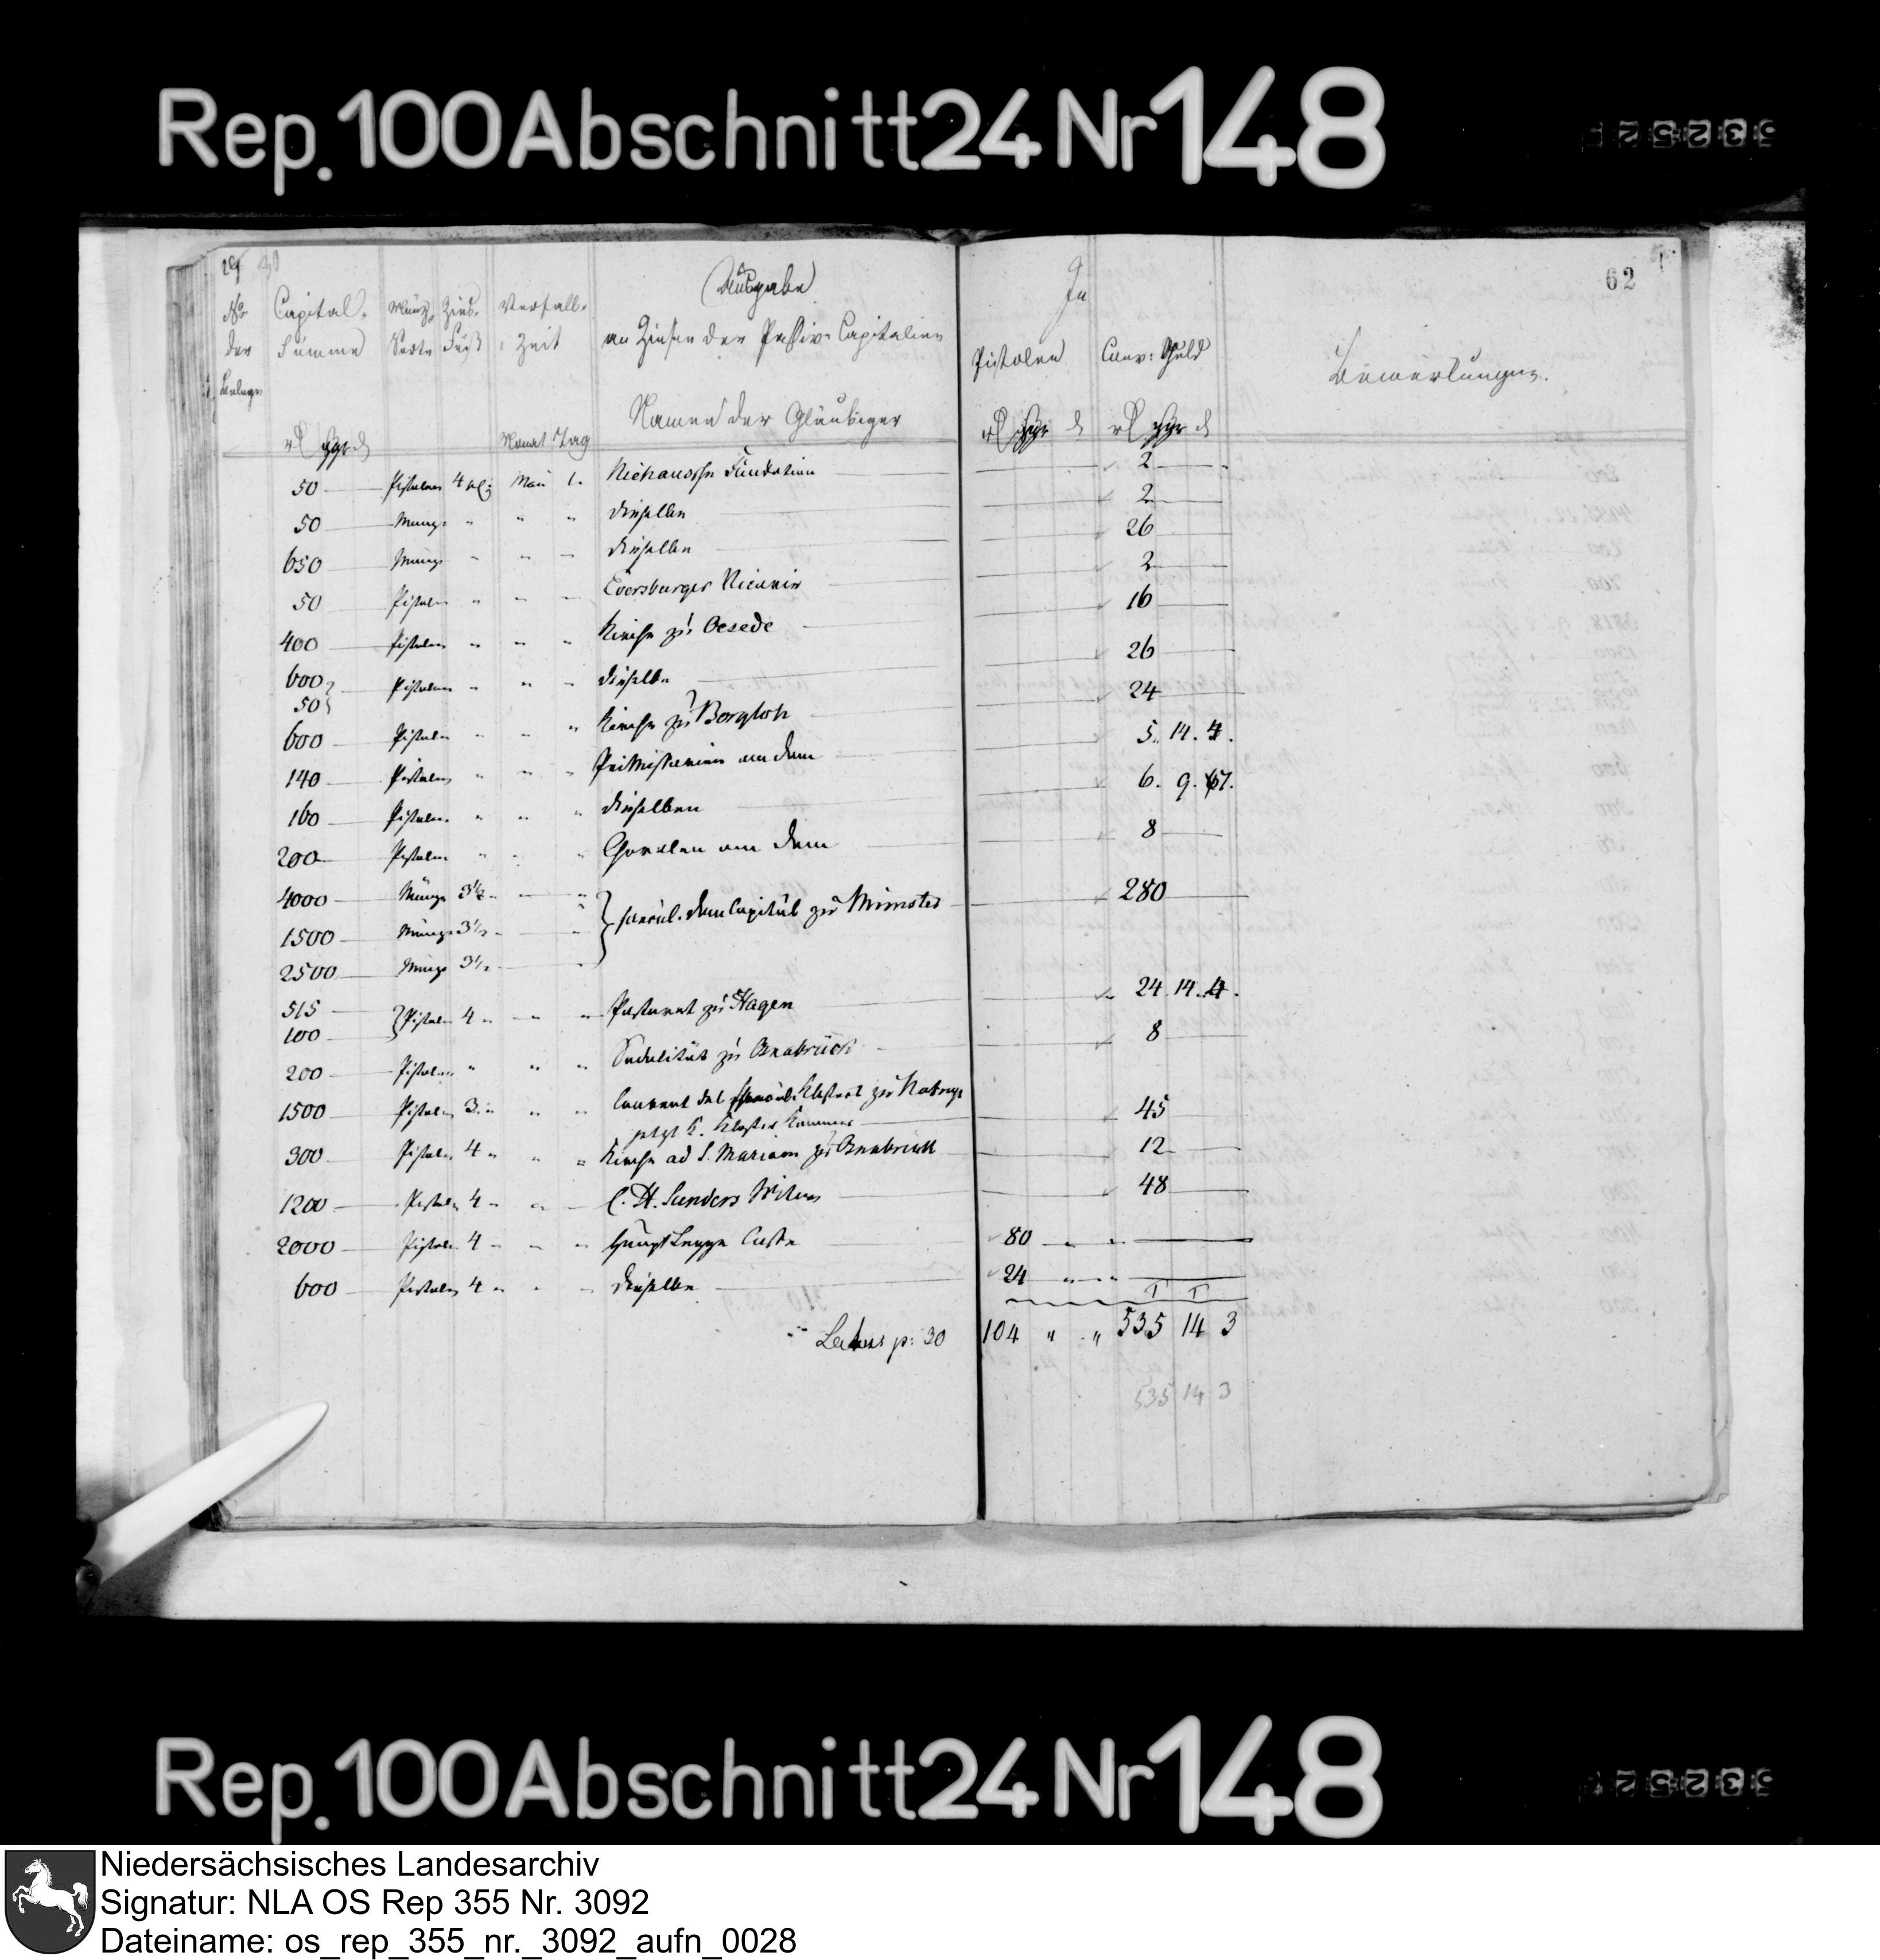 Rep. 100 Abschnitt 24 Nr 148
62
Ausgabe
In
No der Capital- Summe Münz- Sorte Zins- Fuß Verfall- Zeit an Zinsen der Passiv-Capitalien Pistolen Conv: Geld Bemerkungen.
Namen der Gläubiger
Monat Tag
50 Pistolen 4 Mai 1. Fundation 2
50 Münze " " " dieselbe 2
650 Münze " " " dieselbe 26
50 Pistolen " " " Eversburger Vicarie 2
400 Pistolen " " " Kirche zu Oesede 16
600 Pistolen " " " dieselbe 26
50
600 Pistolen " " " Kirche zu Borgloh 24
140 Pistolen " " " am Dom 5. 14. 4.
160 Pistolen " " " dieselben 6. 9. 7.
200 Pistolen " " " Choralen am Dom 8
4000 Münze 3½ " " "
1500 Münze 3½ " " " säcul. Dom Capitul zu Münster 280
2500 Münze 3½ " " "
515 Pistolen 4 " " " Pastorat zu Hagen 24. 14. 4.
100
200 Pistolen " " " Sodalität zu Osnabrück 8
1500 Pistolen 3 " " " Convent des Klosters zu 45
jetzt K. Kloster Kammer
300 Pistolen 4 " " " Kirche ad S. Mariam zu Osnabrück 12
1200 Pistolen 4 " " " C. H. Sanders Witwe 48
2000 Pistolen 4 " " " Haupt Legge Casse 80 " "
600 Pistolen 4 " " " dieselbe 24 " "
Latus p: 30 104 " " 535 14 3
535 14 3
Rep. 100 Abschnitt 24 Nr 148
Niedersächsisches Landesarchiv
Signatur: NLA OS Rep 355 Nr. 3092
Dateiname: os_rep_355_nr._3092_aufn_0028